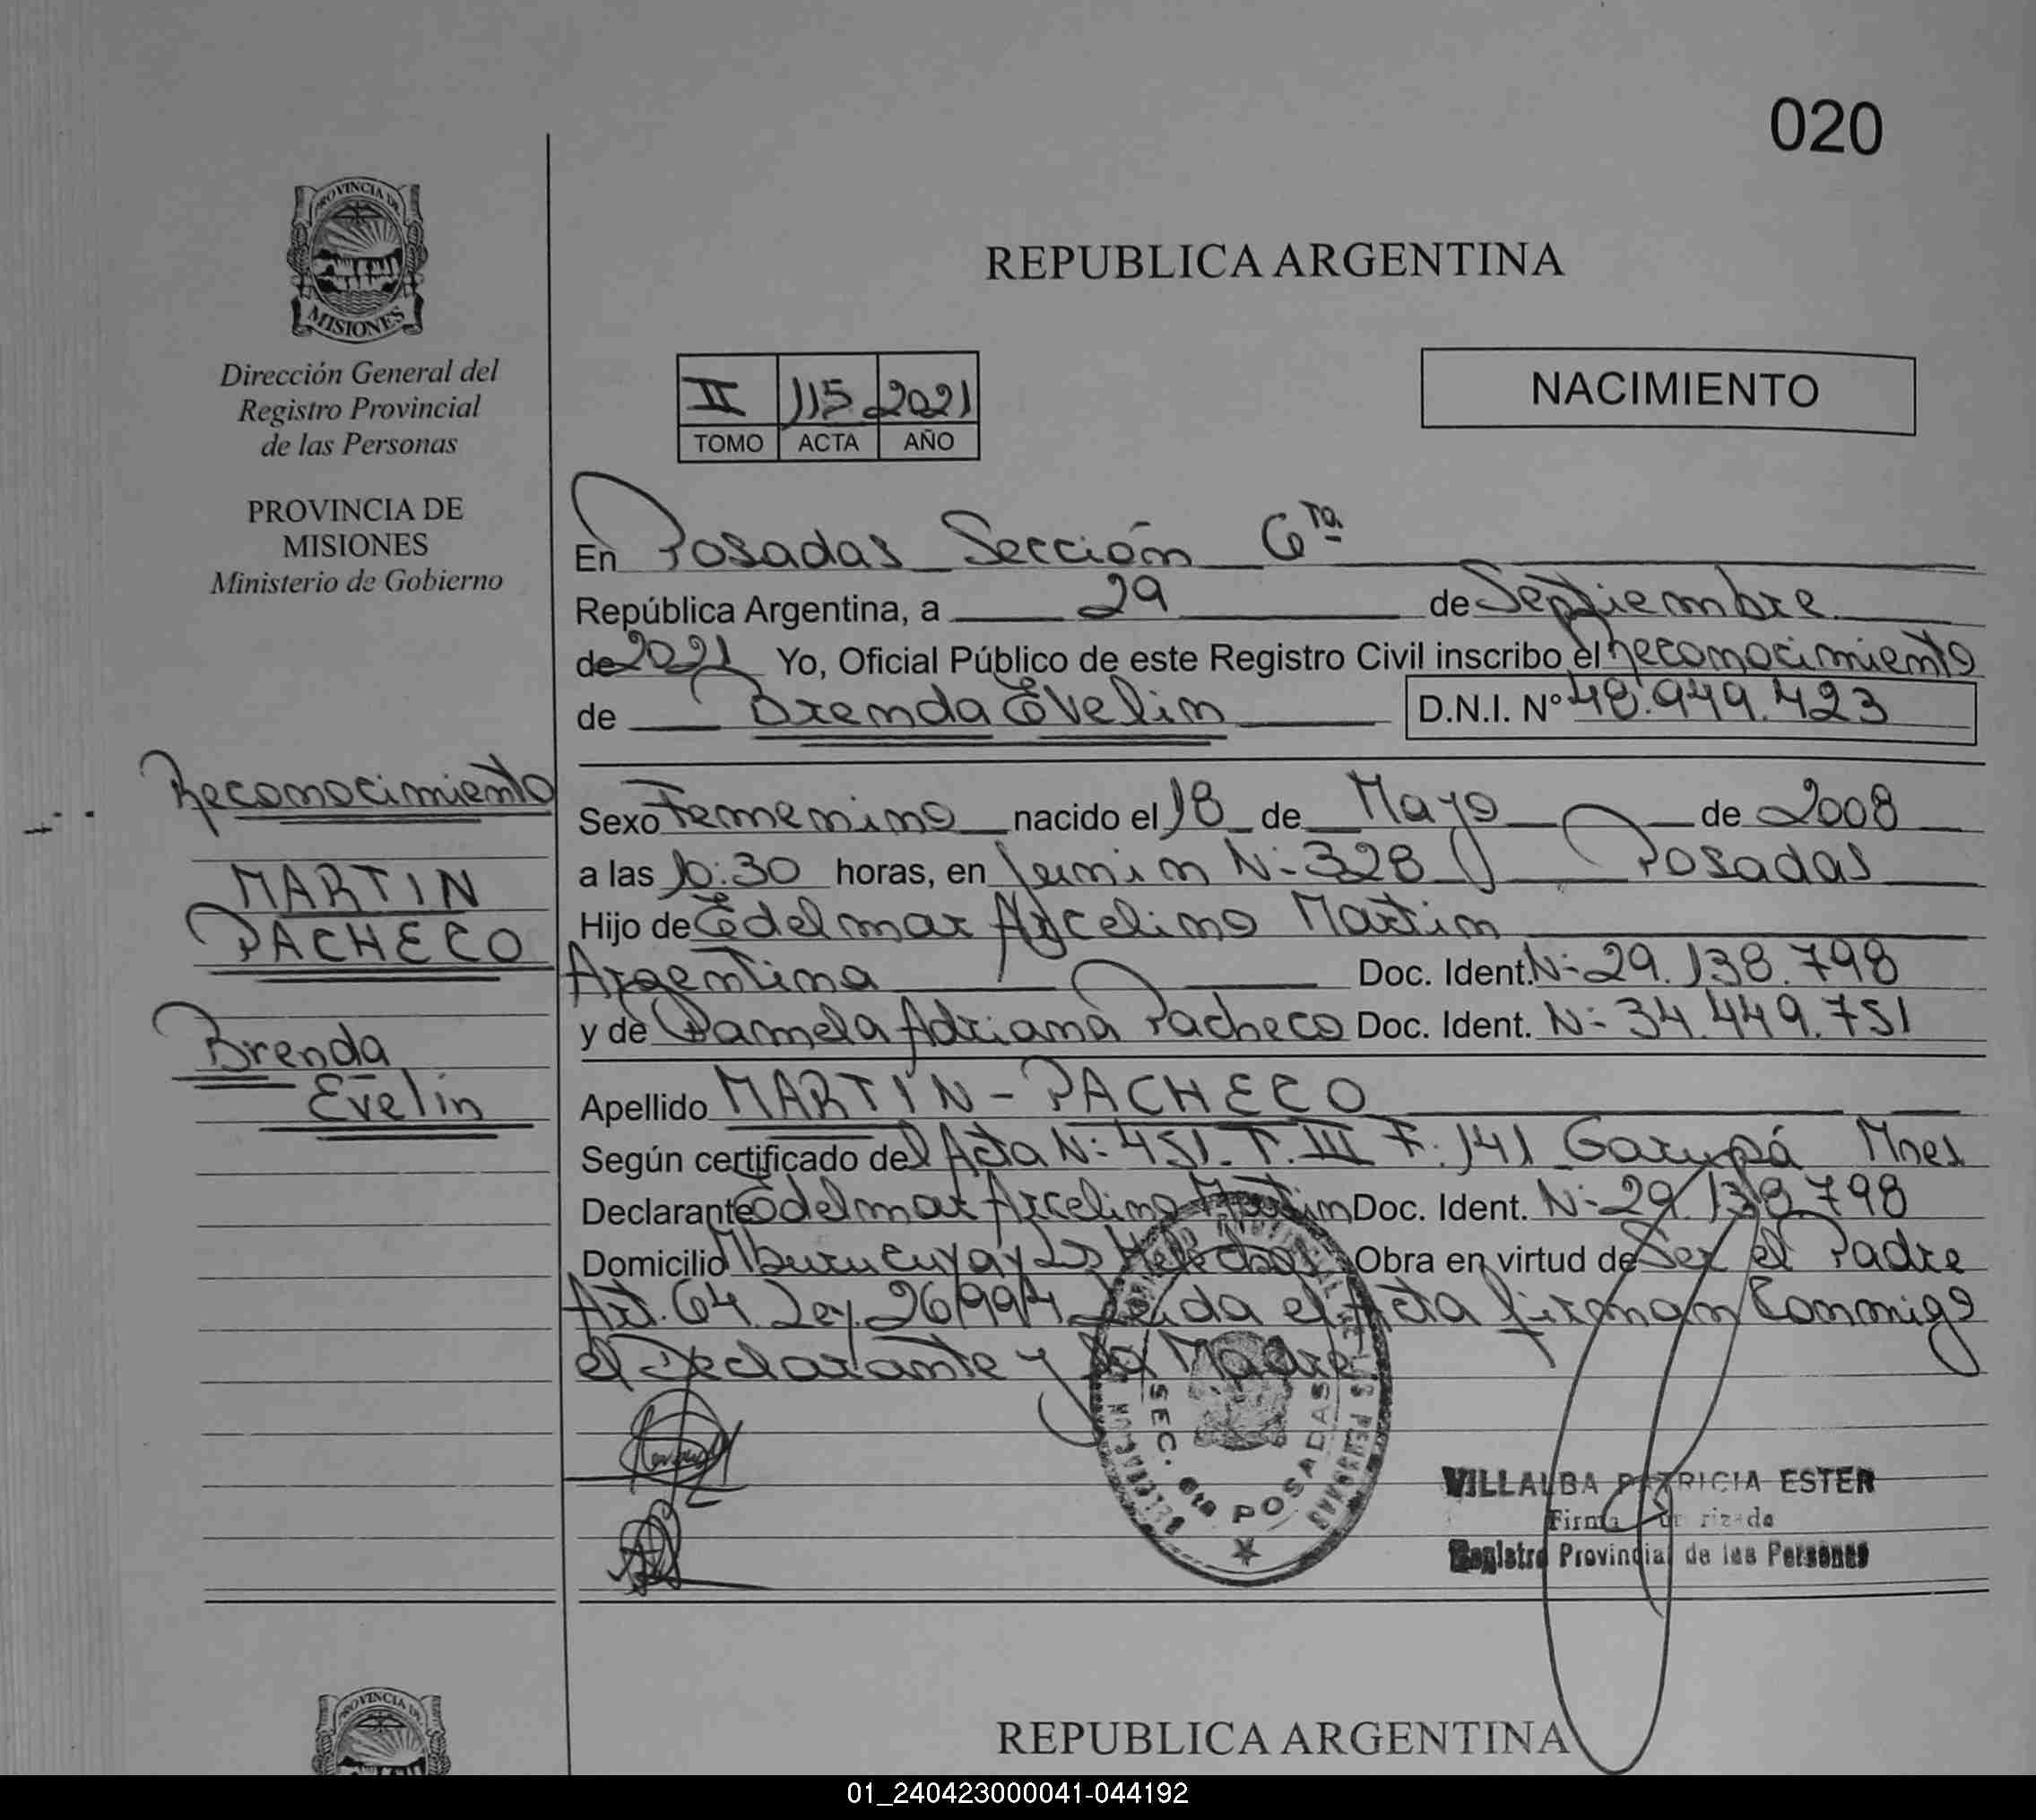 020
PROVINCIA DE
MISIONES
Dirección General del
Registro Provincial
de las Personas
PROVINCIA DE
MISIONES
Ministerio de Gobierno
Reconocimiento
MARTIN
PACHECO
Brenda
Evelin
REPUBLICA ARGENTINA
II 115 2021
TOMO ACTA AÑO
NACIMIENTO
En Posadas Sección 6ta
República Argentina, a 29 de Septiembre
de 2021 Yo, Oficial Público de este Registro Civil inscribo el reconocimiento
de Brenda Evelin D.N.I. Nº 48.949.423
Sexo Femenino nacido el 18 de Mayo de 2008
a las 10:30 horas, en Junin N: 328 Posadas
Hijo de Edelmar Arcelino Martin
Argentina Doc. Ident. N: 29.138.798
y de Pamela Adriana Pacheco Doc. Ident. N: 34.449.751
Apellido MARTIN - PACHECO
Según certificado del Acta N: 451. T. III F. 141 Garupá Mnes
Declarante Edelmar Arcelino Martin Doc. Ident. N: 29.138.798
Domicilio Mburucuya y Los Obra en virtud de Ser el Padre
Art. 64. Ley. 26994 Leida el Acta firman Conmigo
el Declarante y la Madre
SEC. 6ta POSADAS
VILLALBA PATRICIA ESTER
Firma Autorizada
Registro Provincial de las Personas
PROVINCIA DE
REPUBLICA ARGENTINA
01_240423000041-044192